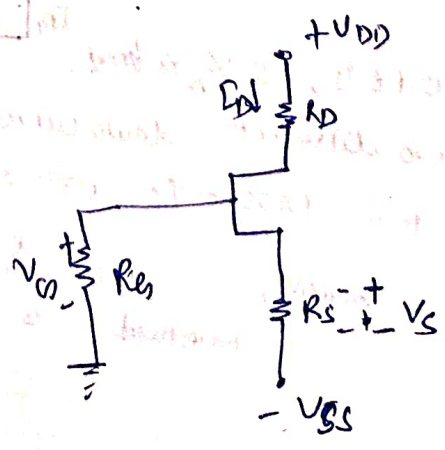 +VDD
ID↓
RD
+
VG
-
RG
RS
- +
- + -
VS
- VSS